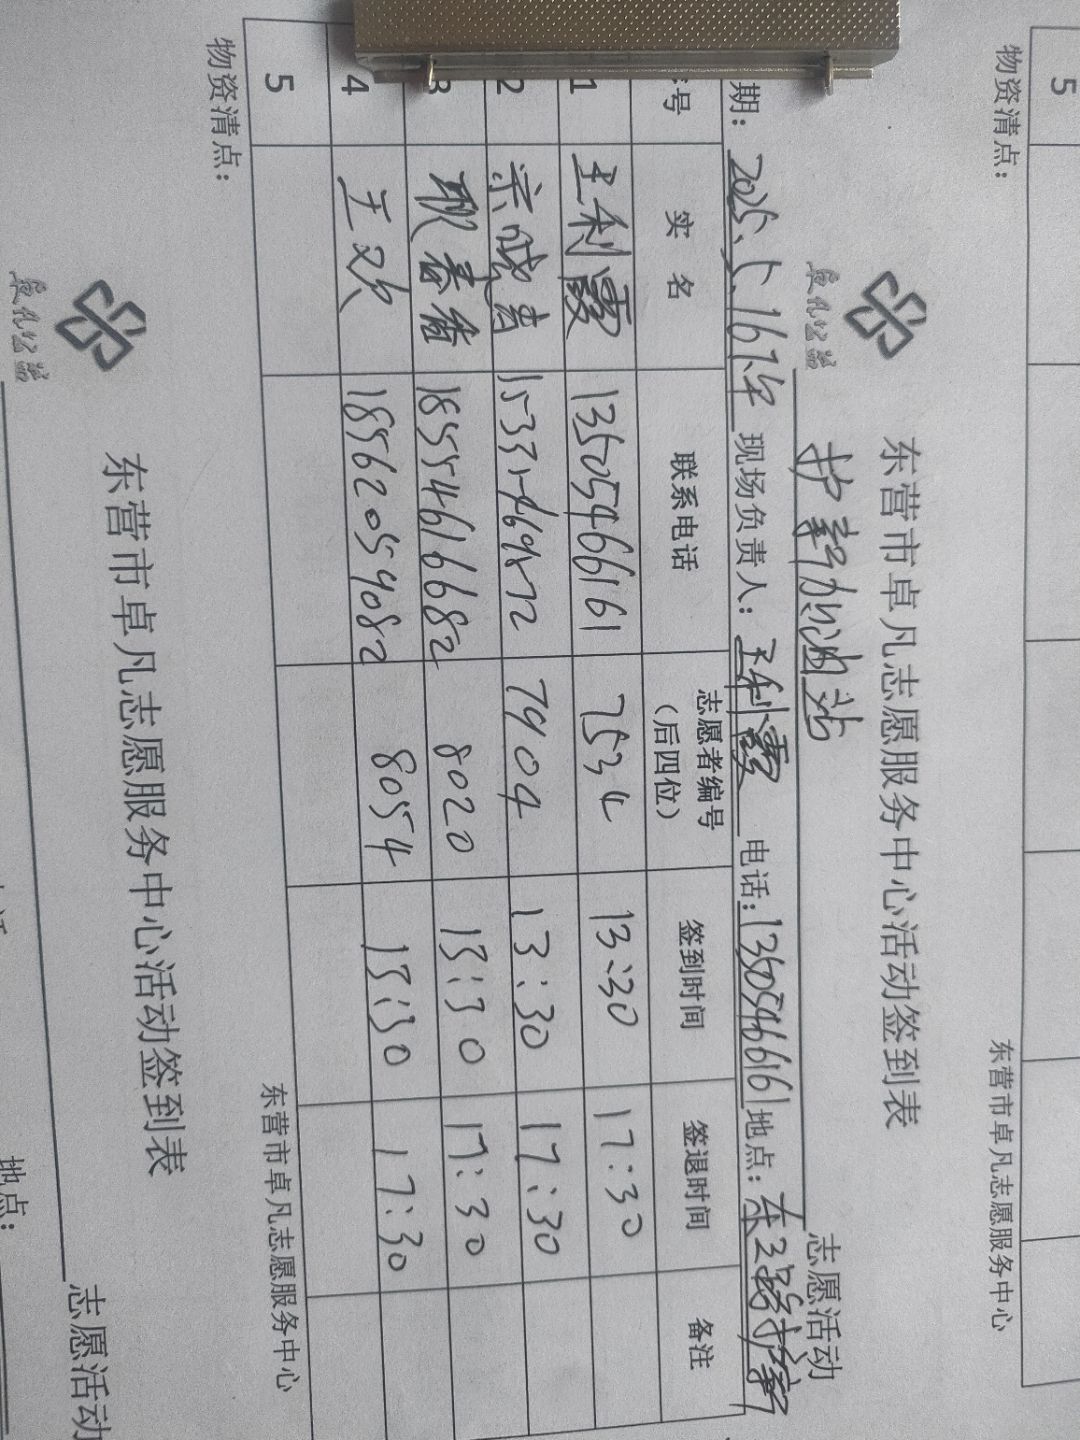 5
物资清点：
东营市卓凡志愿服务中心
卓凡公益
东营市卓凡志愿服务中心活动签到表
护薪加油站 志愿活动
期：2025.5.16下午 现场负责人：王利霞 电话：13505466161 地点：东二路护薪
号 实 名 联系电话 志愿者编号（后四位） 签到时间 签退时间 备注
1 王利霞 13505466161 7534 13:30 17:30
2 宗晓青 7904 13:30 17:30
3 春香 18554616682 8020 13:30 17:30
4 王欢 18562059082 8054 13:30 17:30
5
物资清点：
东营市卓凡志愿服务中心
卓凡公益
东营市卓凡志愿服务中心活动签到表
志愿活动
地点：